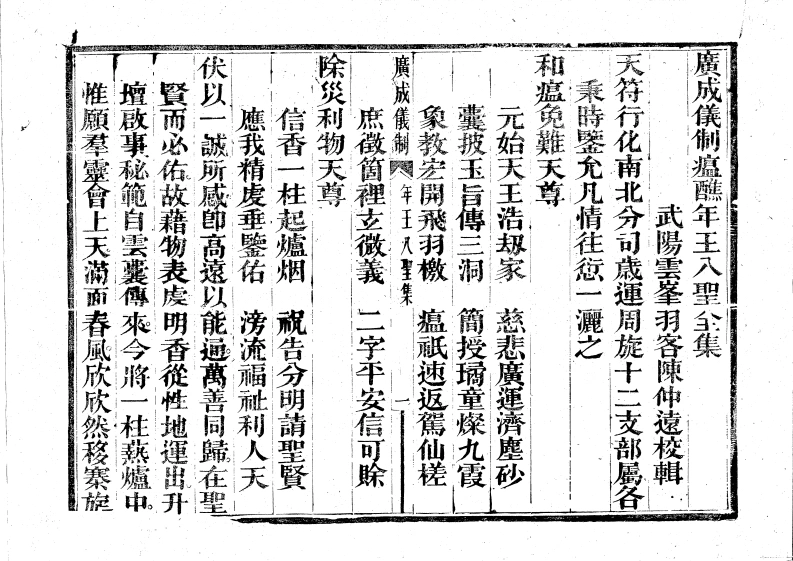 廣成儀制瘟醮年王八聖全集
武陽雲峯羽客陳仲遠校輯
天符行化南北分司歲運周旋十二支部屬各
秉時鑒允凡情往愆一灑之
和瘟免難天尊
元始天王浩刼家 慈悲廣運濟塵砂
囊披玉旨傳三洞 簡授璚童燦九霞
象教宏開飛羽檄 瘟祇速返駕仙槎
庶徵箇裡玄微義 二字平安信可賒
廣成儀制 年王八聖集 一
除災利物天尊
信香一柱起爐烟 祝告分明請聖賢
應我精虔垂鑒佑 滂流福祉利人天
伏以一誠所感卽高遠以能通萬善同歸在聖
賢而必佑故藉物表虔明香從性地運出升
壇啟事秘範自雲囊傳來今將一柱爇爐中
惟願羣靈會上天滿面春風欣欣然移寨旋